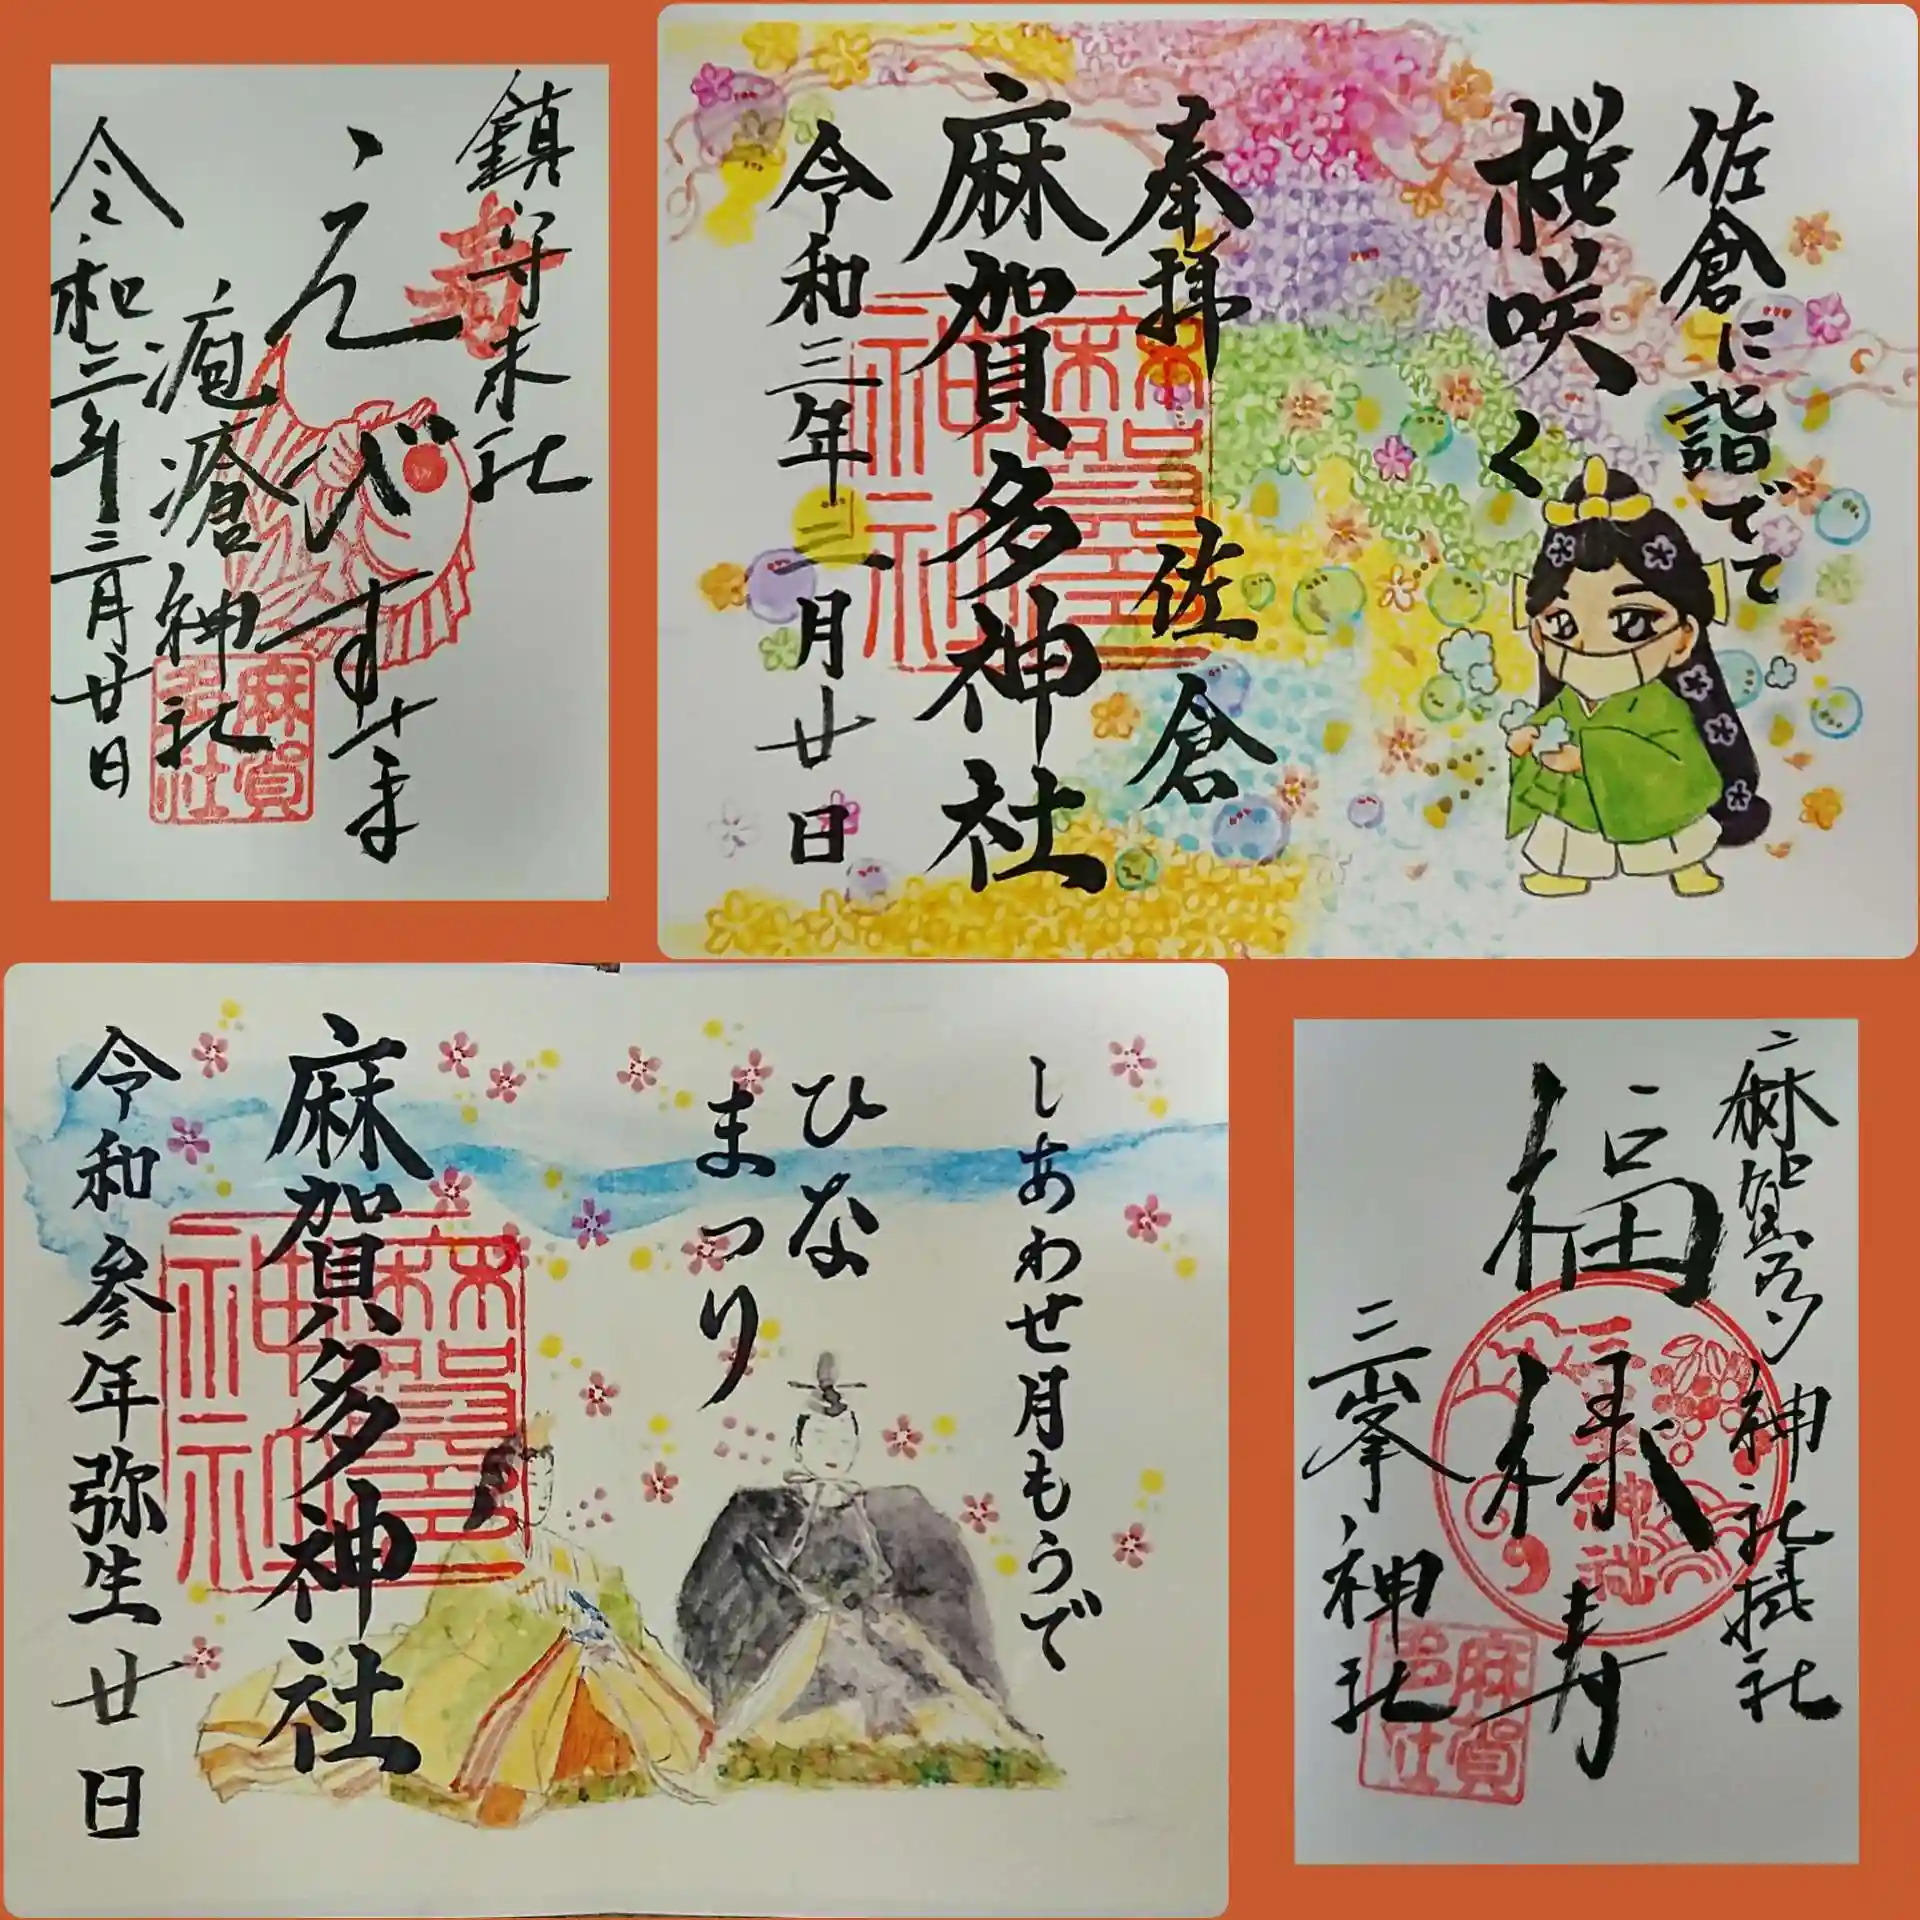 鎮守末社
寿
えびす
疱瘡神社
麻賀多社
令和三年三月廿日
佐倉に詣でて
桜咲く
奉拝 佐倉
麻賀多神社
麻賀多神社
令和三年三月廿日
しあわせ月もうで
ひな
まつり
麻賀多神社
麻賀多神社
令和参年弥生廿日
麻賀多神社摂社
福
様
寿
三峯神社
三峯神社
麻賀多社